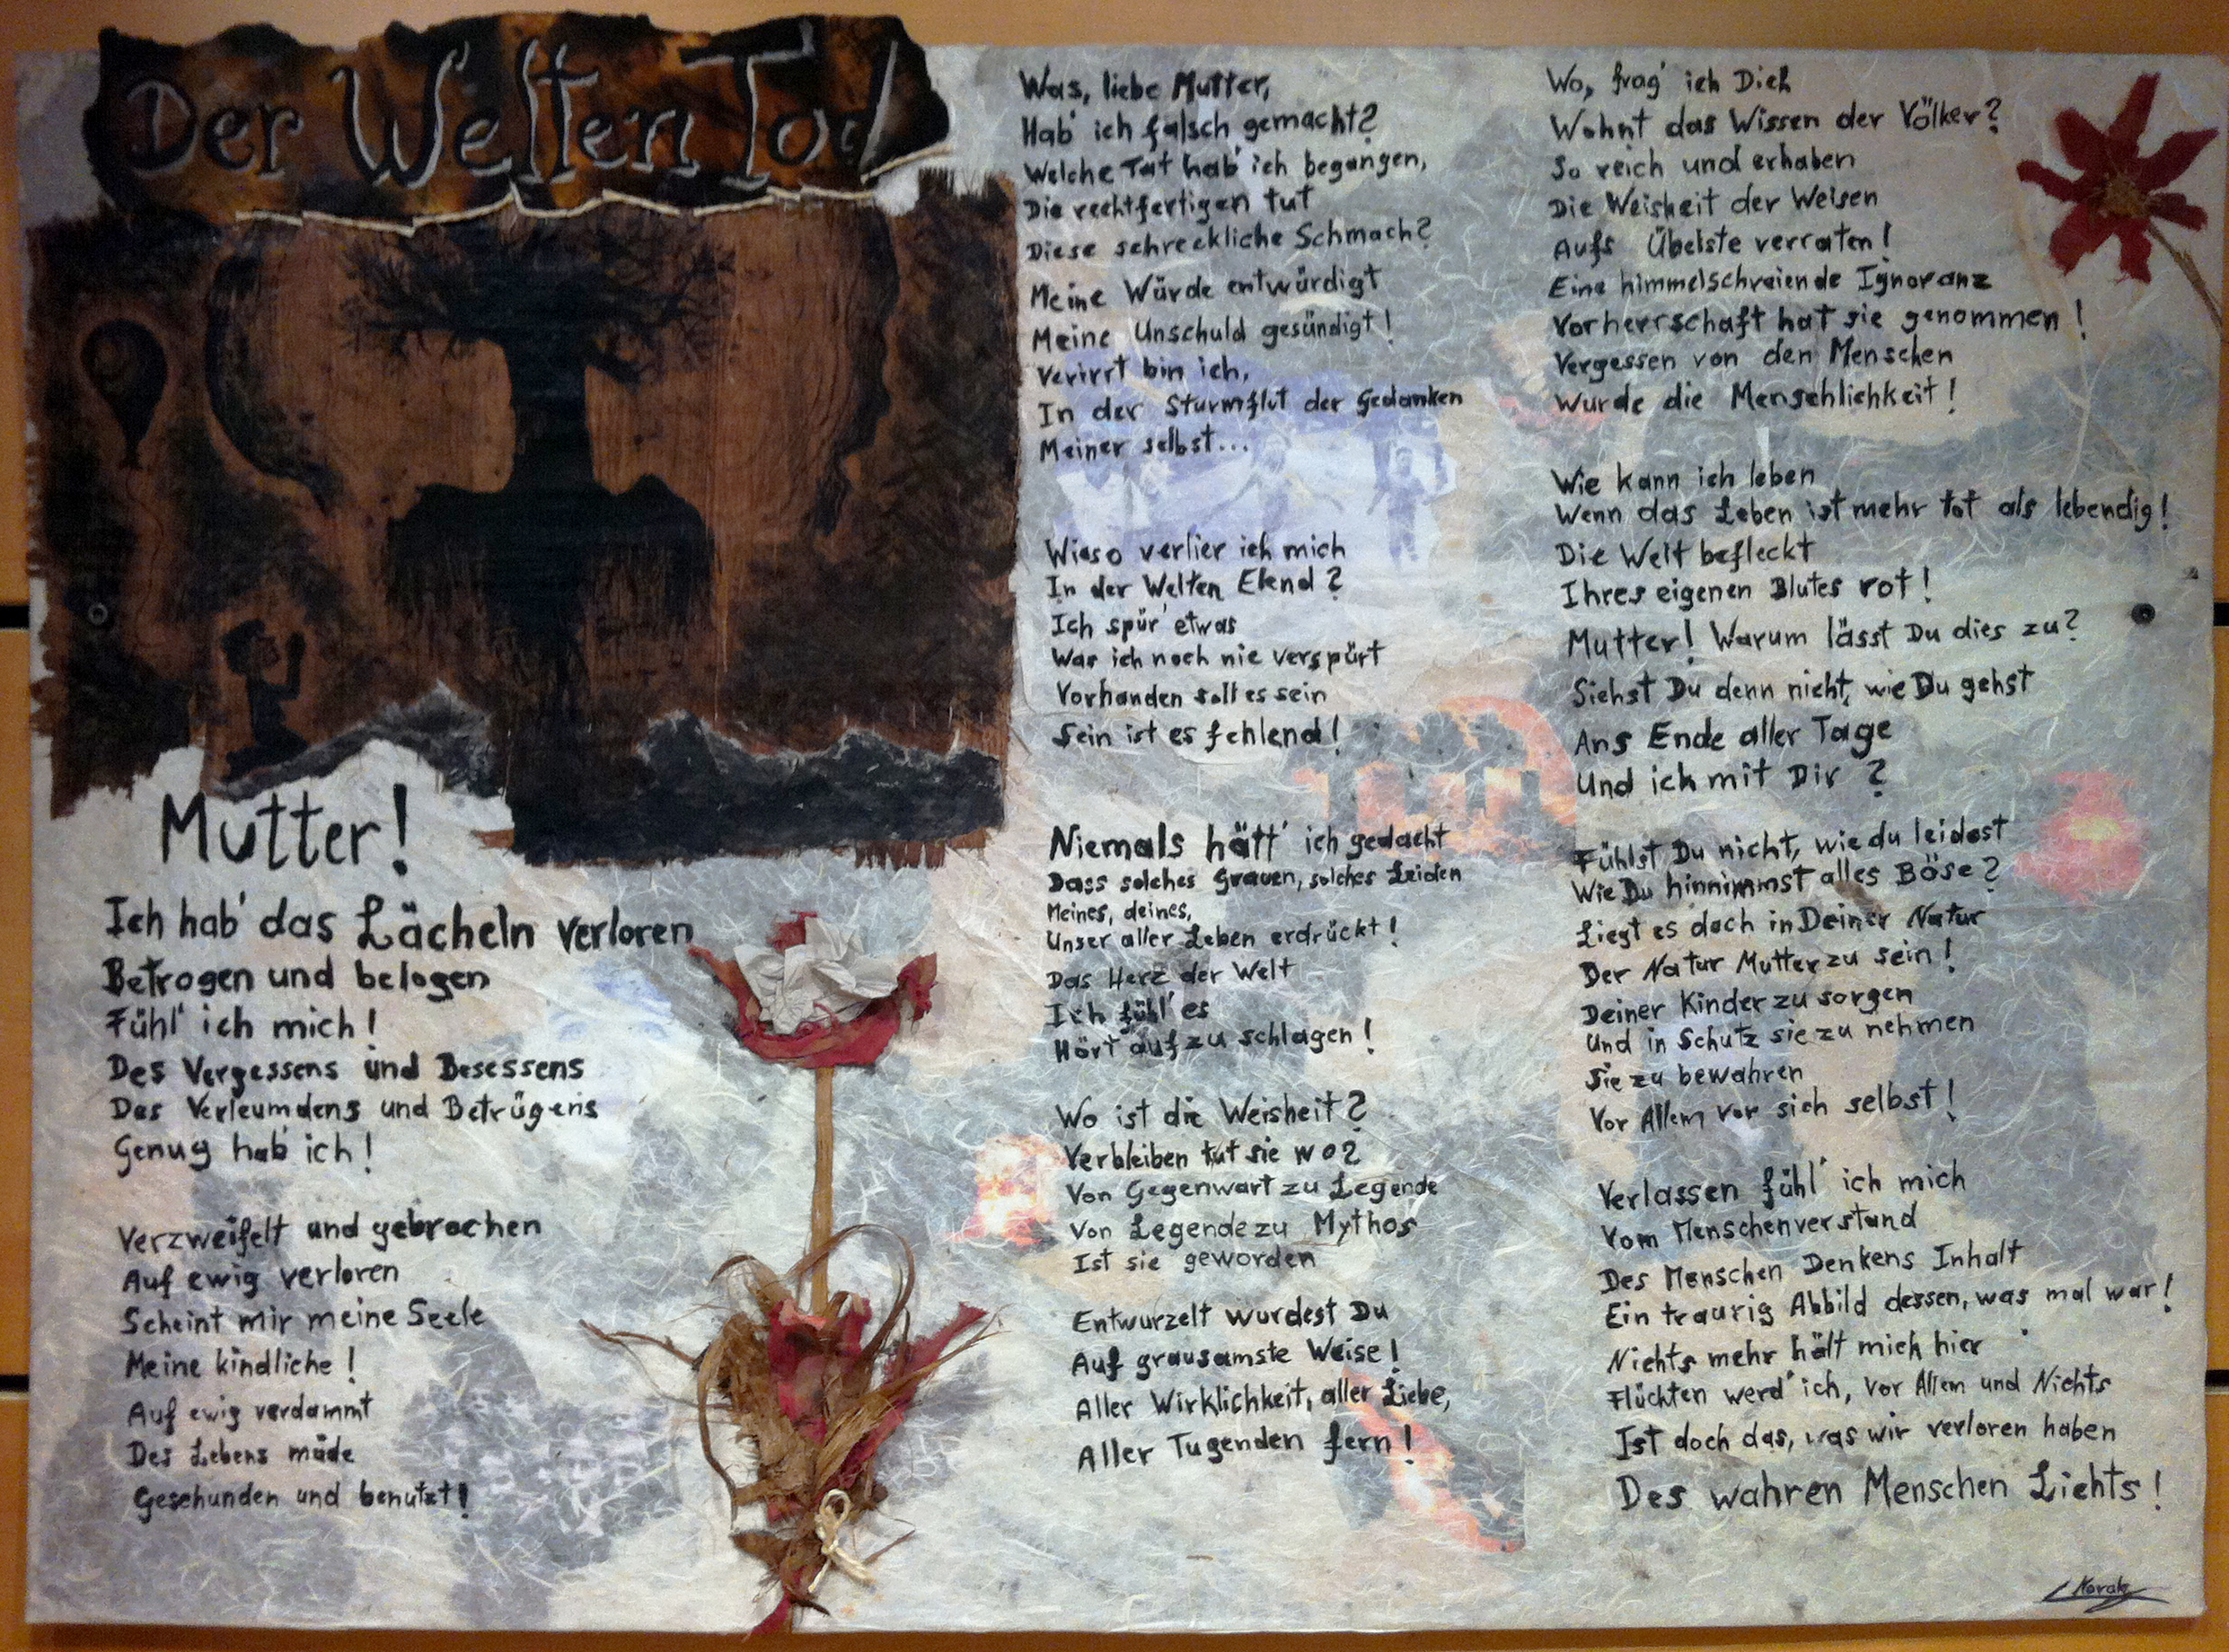 Der Welten Tod
Mutter!
Ich hab' das Lächeln verloren
Betrogen und belogen
Fühl' ich mich!
Des Vergessens und Besessens
Des Verleumdens und Betrügens
Genug hab' ich!
Verzweifelt und gebrochen
Auf ewig verloren
Scheint mir meine Seele
Meine kindliche!
Auf ewig verdammt
Des Lebens müde
Geschunden und benutzt!
Was, liebe Mutter,
Hab' ich falsch gemacht?
Welche Tat hab' ich begangen,
Die rechtfertigen tut
Diese schreckliche Schmach?
Meine Würde entwürdigt
Meine Unschuld gesündigt!
Verirrt bin ich,
In der Sturmflut der Gedanken
Meiner selbst...
Wieso verlier ich mich
In der Welten Elend?
Ich spür' etwas
Was ich noch nie verspürt
Vorhanden soll es sein
Sein ist es fehlend!
Niemals hätt' ich gedacht
Dass solches Grauen, solches Leiden
Meines, deines,
Unser aller Leben erdrückt!
Das Herz der Welt
Ich fühl' es
Hört auf zu schlagen!
Wo ist die Weisheit?
Verbleiben tut sie wo?
Von Gegenwart zu Legende
Von Legende zu Mythos
Ist sie geworden
Entwurzelt wurdest Du
Auf grausamste Weise!
Aller Wirklichkeit, aller Liebe,
Aller Tugenden fern!
Wo, frag' ich Dich
Wohnt das Wissen der Völker?
So reich und erhaben
Die Weisheit der Weisen
Aufs Übelste verraten!
Eine himmelschreiende Ignoranz
Vorherrschaft hat sie genommen!
Vergessen von den Menschen
Wurde die Menschlichkeit!
Wie kann ich leben
Wenn das Leben ist mehr tot als lebendig!
Die Welt befleckt
Ihres eigenen Blutes rot!
Mutter! Warum lässt Du dies zu?
Siehst Du denn nicht, wie Du gehst
Ans Ende aller Tage
Und ich mit Dir?
Fühlst Du nicht, wie du leidest
Wie Du hinnimmst alles Böse?
Liegt es doch in Deiner Natur
Der Natur Mutter zu sein!
Deiner Kinder zu sorgen
Und in Schutz sie zu nehmen
Sie zu bewahren
Vor Allem vor sich selbst!
Verlassen fühl' ich mich
Vom Menschenverstand
Des Menschen Denkens Inhalt
Ein traurig Abbild dessen, was mal war!
Nichts mehr hält mich hier
Flüchten werd' ich, vor Allem und Nichts
Ist doch das, was wir verloren haben
Des wahren Menschen Lichts!